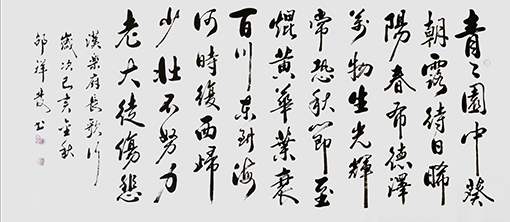 青々園中葵
朝露待日晞
陽春布德澤
萬物生光輝
常恐秋節至
焜黃華葉衰
百川東到海
何時復西歸
少壯不努力
老大徒傷悲
漢樂府長歌行
歲次己亥金秋
邵祥 書